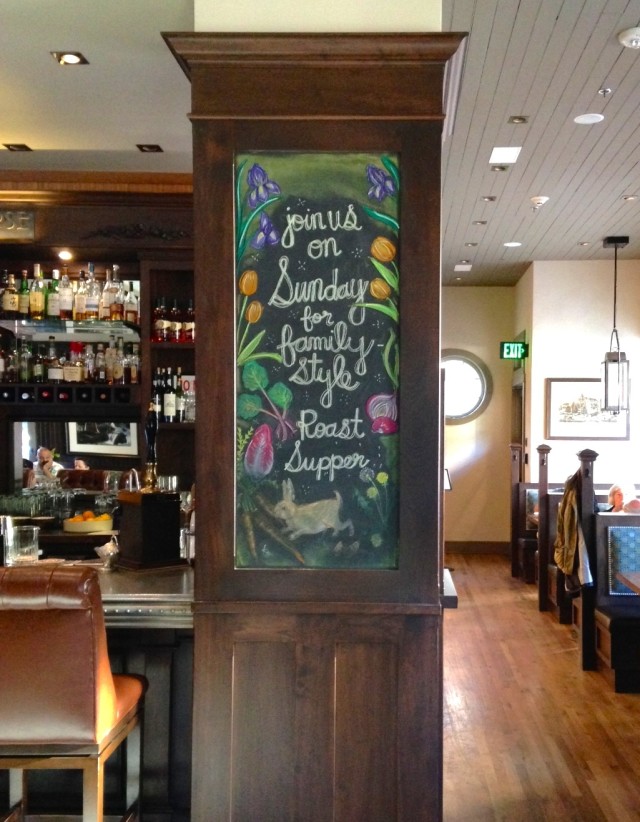 join us
on
Sunday
for
family-
style
Roast
Supper
EXIT